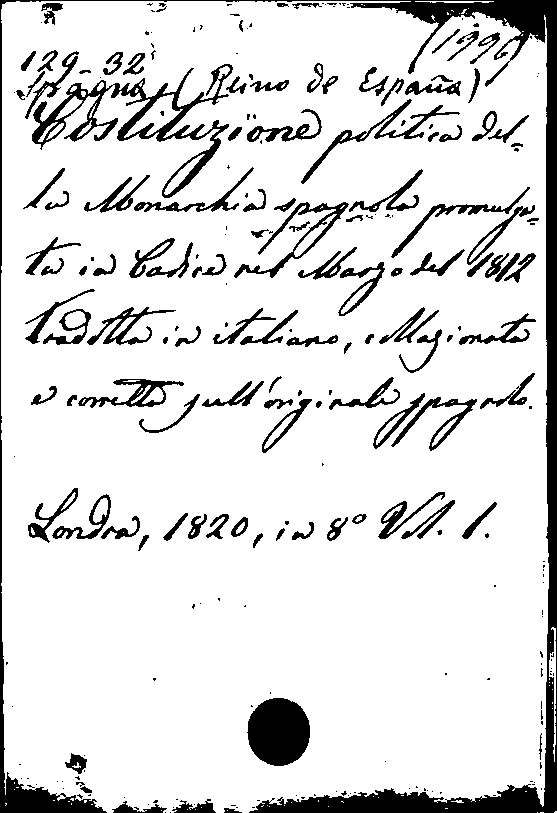 (1996)
129-32
Spagna, (Reino de España)
Costituzione politica del-
la Monarchia spagnola promulga-
ta in Cadice nel Marzo del 1812
tradotta in italiano, collazionata
e corretta sull'originale spagnolo.
Londra, 1820, in 8° Vol. 1.